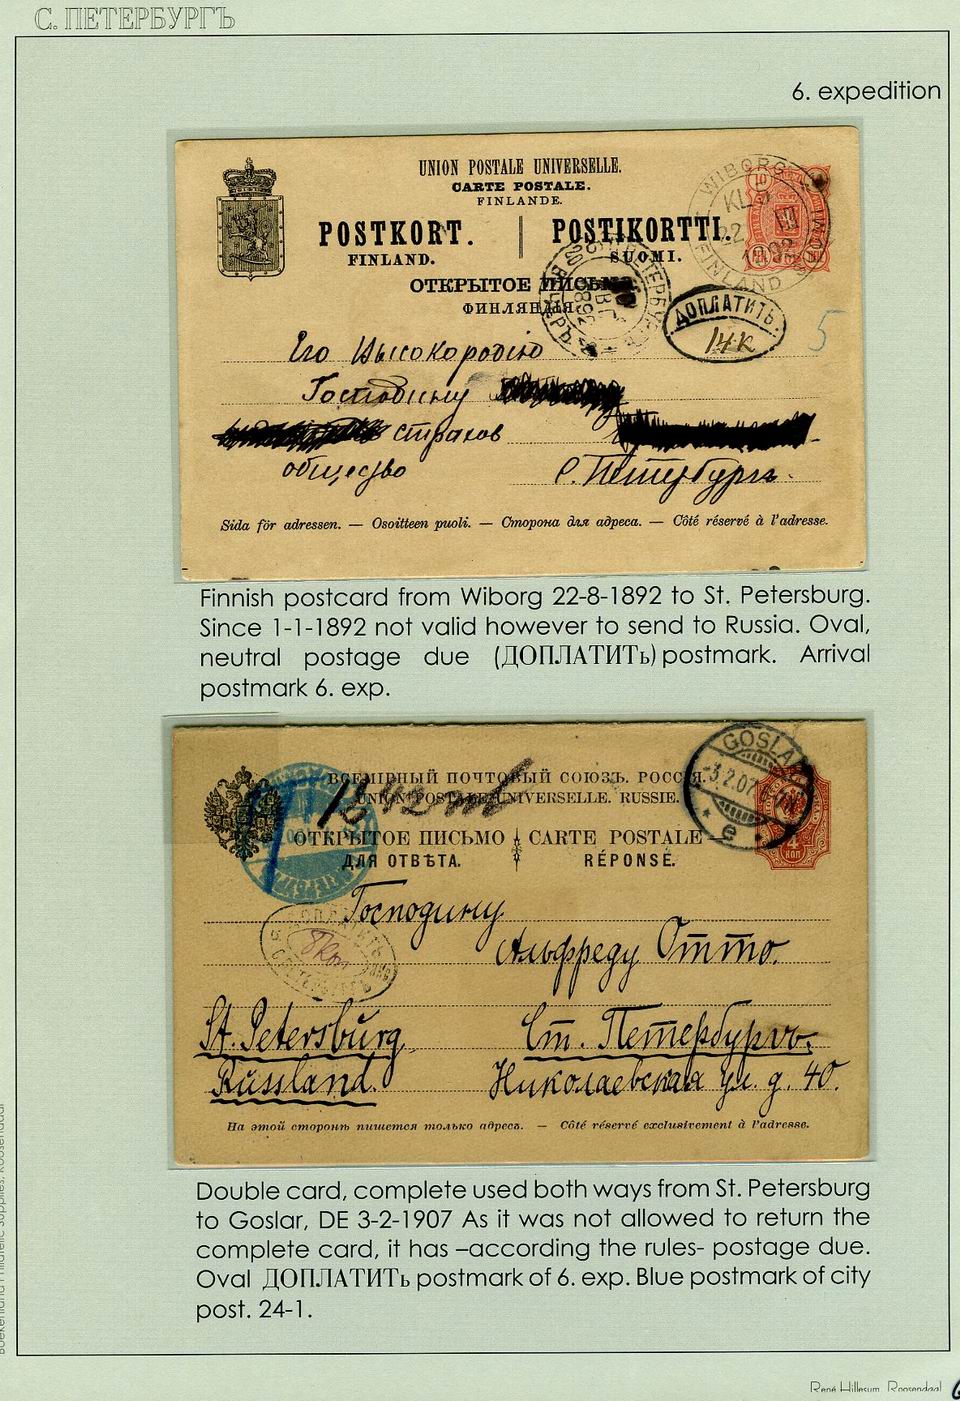 С. ПЕТЕРБУРГЪ
6. expedition
UNION POSTALE UNIVERSELLE.
CARTE POSTALE.
FINLANDE.
POSTKORT. | POSTIKORTTI.
FINLAND. SUOMI.
ОТКРЫТОЕ ПИСЬМО
ФИНЛЯНДІЯ
10
WIBORG
22 VIII
1892
FINLAND
ДОПЛАТИТЬ.
14к
5
Его Высокородію
Господину
страхов
общество
С. Петербургъ.
Sida för adressen. — Osoitteen puoli. — Сторона для адреса. — Côté réservé à l'adresse.
Finnish postcard from Wiborg 22-8-1892 to St. Petersburg.
Since 1-1-1892 not valid however to send to Russia. Oval,
neutral postage due (ДОПЛАТИТЬ) postmark. Arrival
postmark 6. exp.
ВСЕМІРНЫЙ ПОЧТОВЫЙ СОЮЗЪ. РОССІЯ.
UNION POSTALE UNIVERSELLE. RUSSIE.
ОТКРЫТОЕ ПИСЬМО CARTE POSTALE
ДЛЯ ОТВѢТА. RÉPONSE.
GOSLAR
3.2.07
e
4
КОП
Господину
Альфреду Отто.
St. Petersburg Ст. Петербургъ.
Russland. Николаевская ул. д. 40.
На этой сторонѣ пишется только адресъ. — Côté réservé exclusivement à l'adresse.
Double card, complete used both ways from St. Petersburg
to Goslar, DE 3-2-1907 As it was not allowed to return the
complete card, it has –according the rules- postage due.
Oval ДОПЛАТИТЬ postmark of 6. exp. Blue postmark of city
post. 24-1.
René Hillesum, Roosendaal